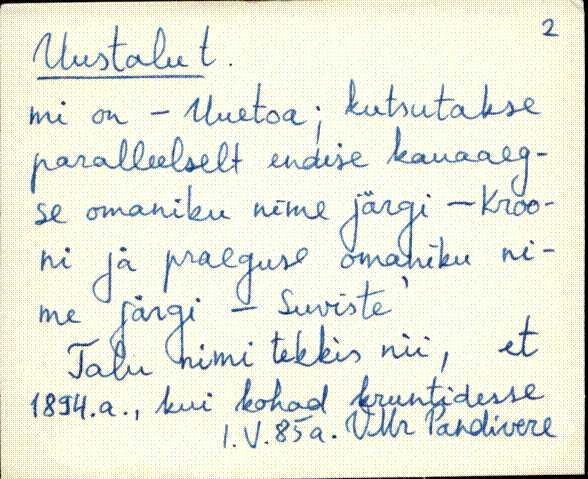 2
Uustalu t.
mi on – Uuetoa; kutsutakse
paralleelselt endise kauaaeg-
se omaniku nime järgi – Kroo-
ni ja praeguse omaniku ni-
me järgi – Suviste'
Talu nimi tekkis nii, et
1894.a., kui kohad kruntidesse
1.V.85a. VMr Pandivere